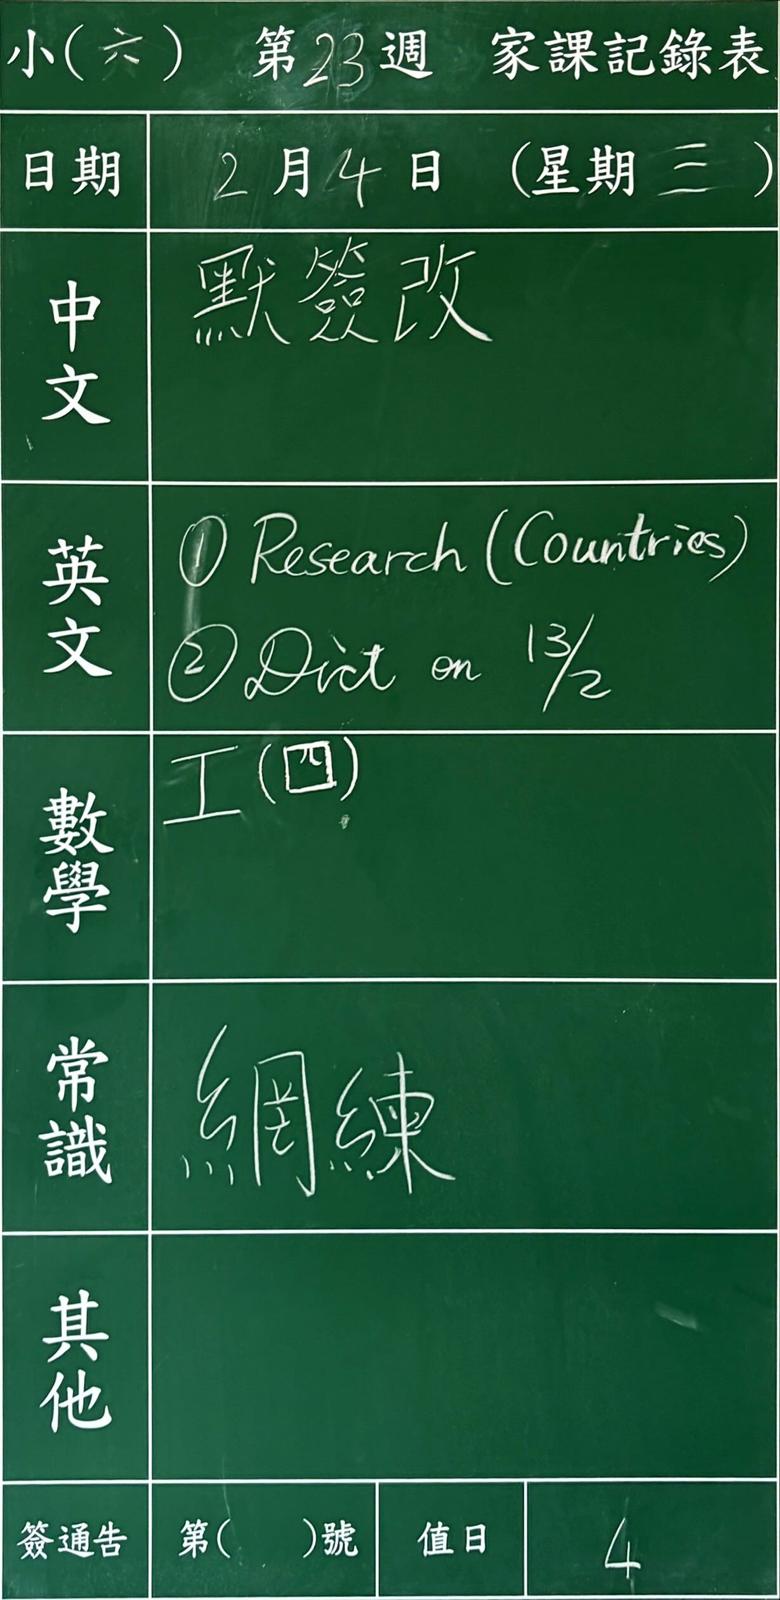 小(六) 第23週 家課記錄表
日期 2月4日 (星期三)
中文 默簽改
英文 ① Research (Countries)
② Dict on 13/2
數學 工(四)
常識 網練
其他
簽通告 第( )號 值日 4